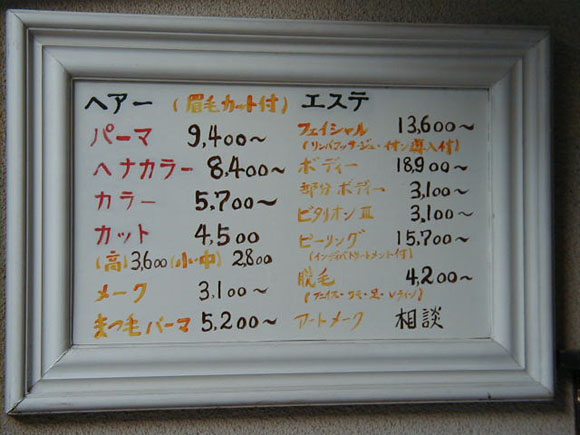 ヘアー (眉毛カット付)
パーマ 9,400〜
ヘナカラー 8,400〜
カラー 5,700〜
カット 4,500
(高)3,600(小・中) 2,800
メーク 3,100〜
まつ毛パーマ 5,200〜
エステ
フェイシャル 13,600〜
(リンパマッサージュ・イオン導入付)
ボディー 18,900〜
部分ボディー 3,100〜
ビタリオンⅢ 3,100〜
ピーリング 15,700〜
トリートメント付)
脱毛 4,200〜
(フェイス・ワキ・足・Vライン)
アートメーク 相談